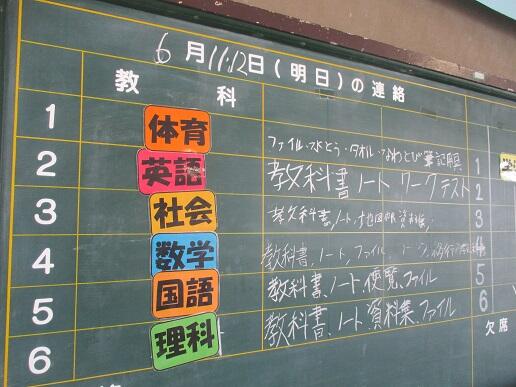 6月11.12日(明日)の連絡
教科
1 体育 ファイル・水とう・タオル・なわとび 筆記用具 1
2 英語 教科書 ノート ワーク テスト 2
3 社会 教科書、ノート、地図帳、資料集 3
4 数学 教科書、ノート、ファイル、 4
5 国語 教科書、ノート、便覧、ファイル 5
6 理科 教科書、ノート、資料集、ファイル 6
欠席